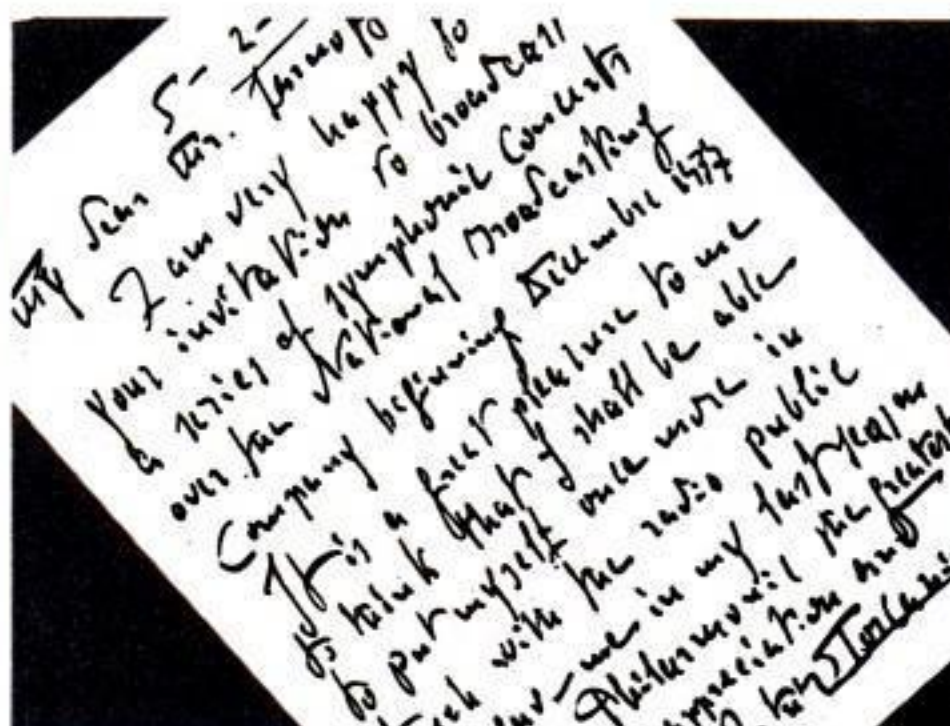 5-2-
My dear Mr. Sarnoff
I am very happy to
your invitation to broadcast
a series of symphonic concerts
over the National Broadcasting
Company beginning December 1937
It is a great pleasure to me
to think that I shall be able
to put myself once more in
with the radio public
me in my last year
Philharmonic the greatest
appreciation and
Toscanini